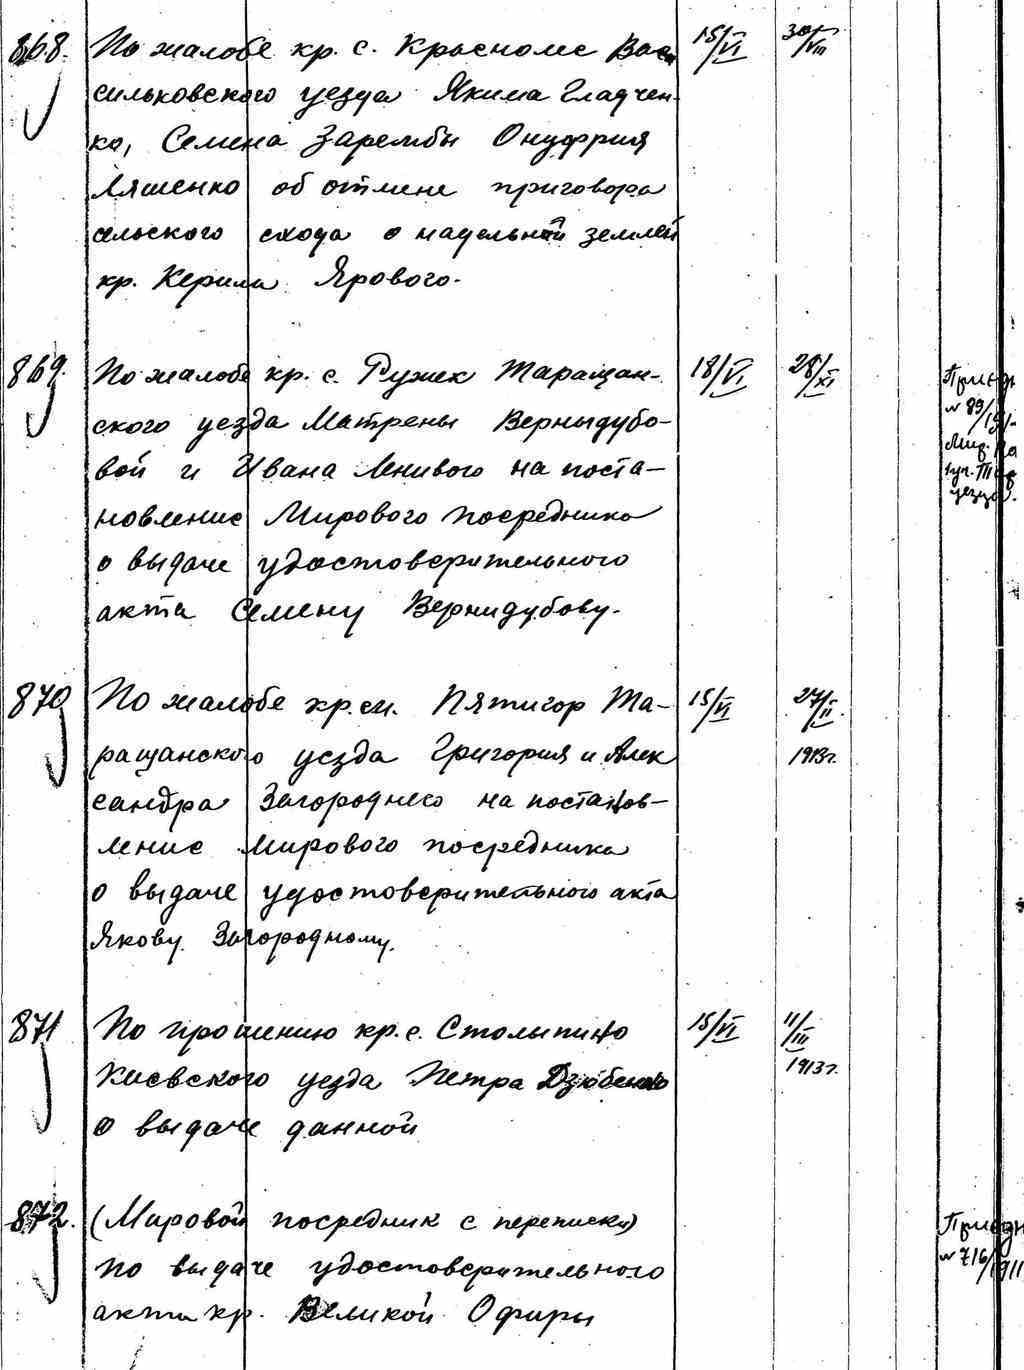 868. По жалобе кр. с. Красноме Ва
сильковского уезда Якима Гладчен-
ко, Семена Зарембы Онуфрия
Ляшенко об отмене приговора
сельского схода о надельной землей
кр. Керила Ярового.
15/VI
30/VIII
869. По жалобе кр. с. Ружек Таращан-
ского уезда Матрены Вернидубо-
вой и Ивана Ленивого на поста-
новление Мирового посредника
о выдаче удостоверительного
акта Семену Вернидубову.
18/VI
28/XI
№ 89/191
Мир.
уезда.
870 По жалобе кр. м. Пятигор Та-
ращанского уезда Григория и Алек
сандра Загороднего на постанов-
ление Мирового посредника
о выдаче удостоверительного акта
Якову Загородному.
15/VI
27/II
1913г.
871 По прошению кр. с. Столыпино
Киевского уезда Петра Дзюбенко
о выдаче данной
15/VI
11/III
1913г.
872. (Мировой посредник с переписки)
по выдаче удостоверительного
акта кр. Великой Офиры
№ 716/1911